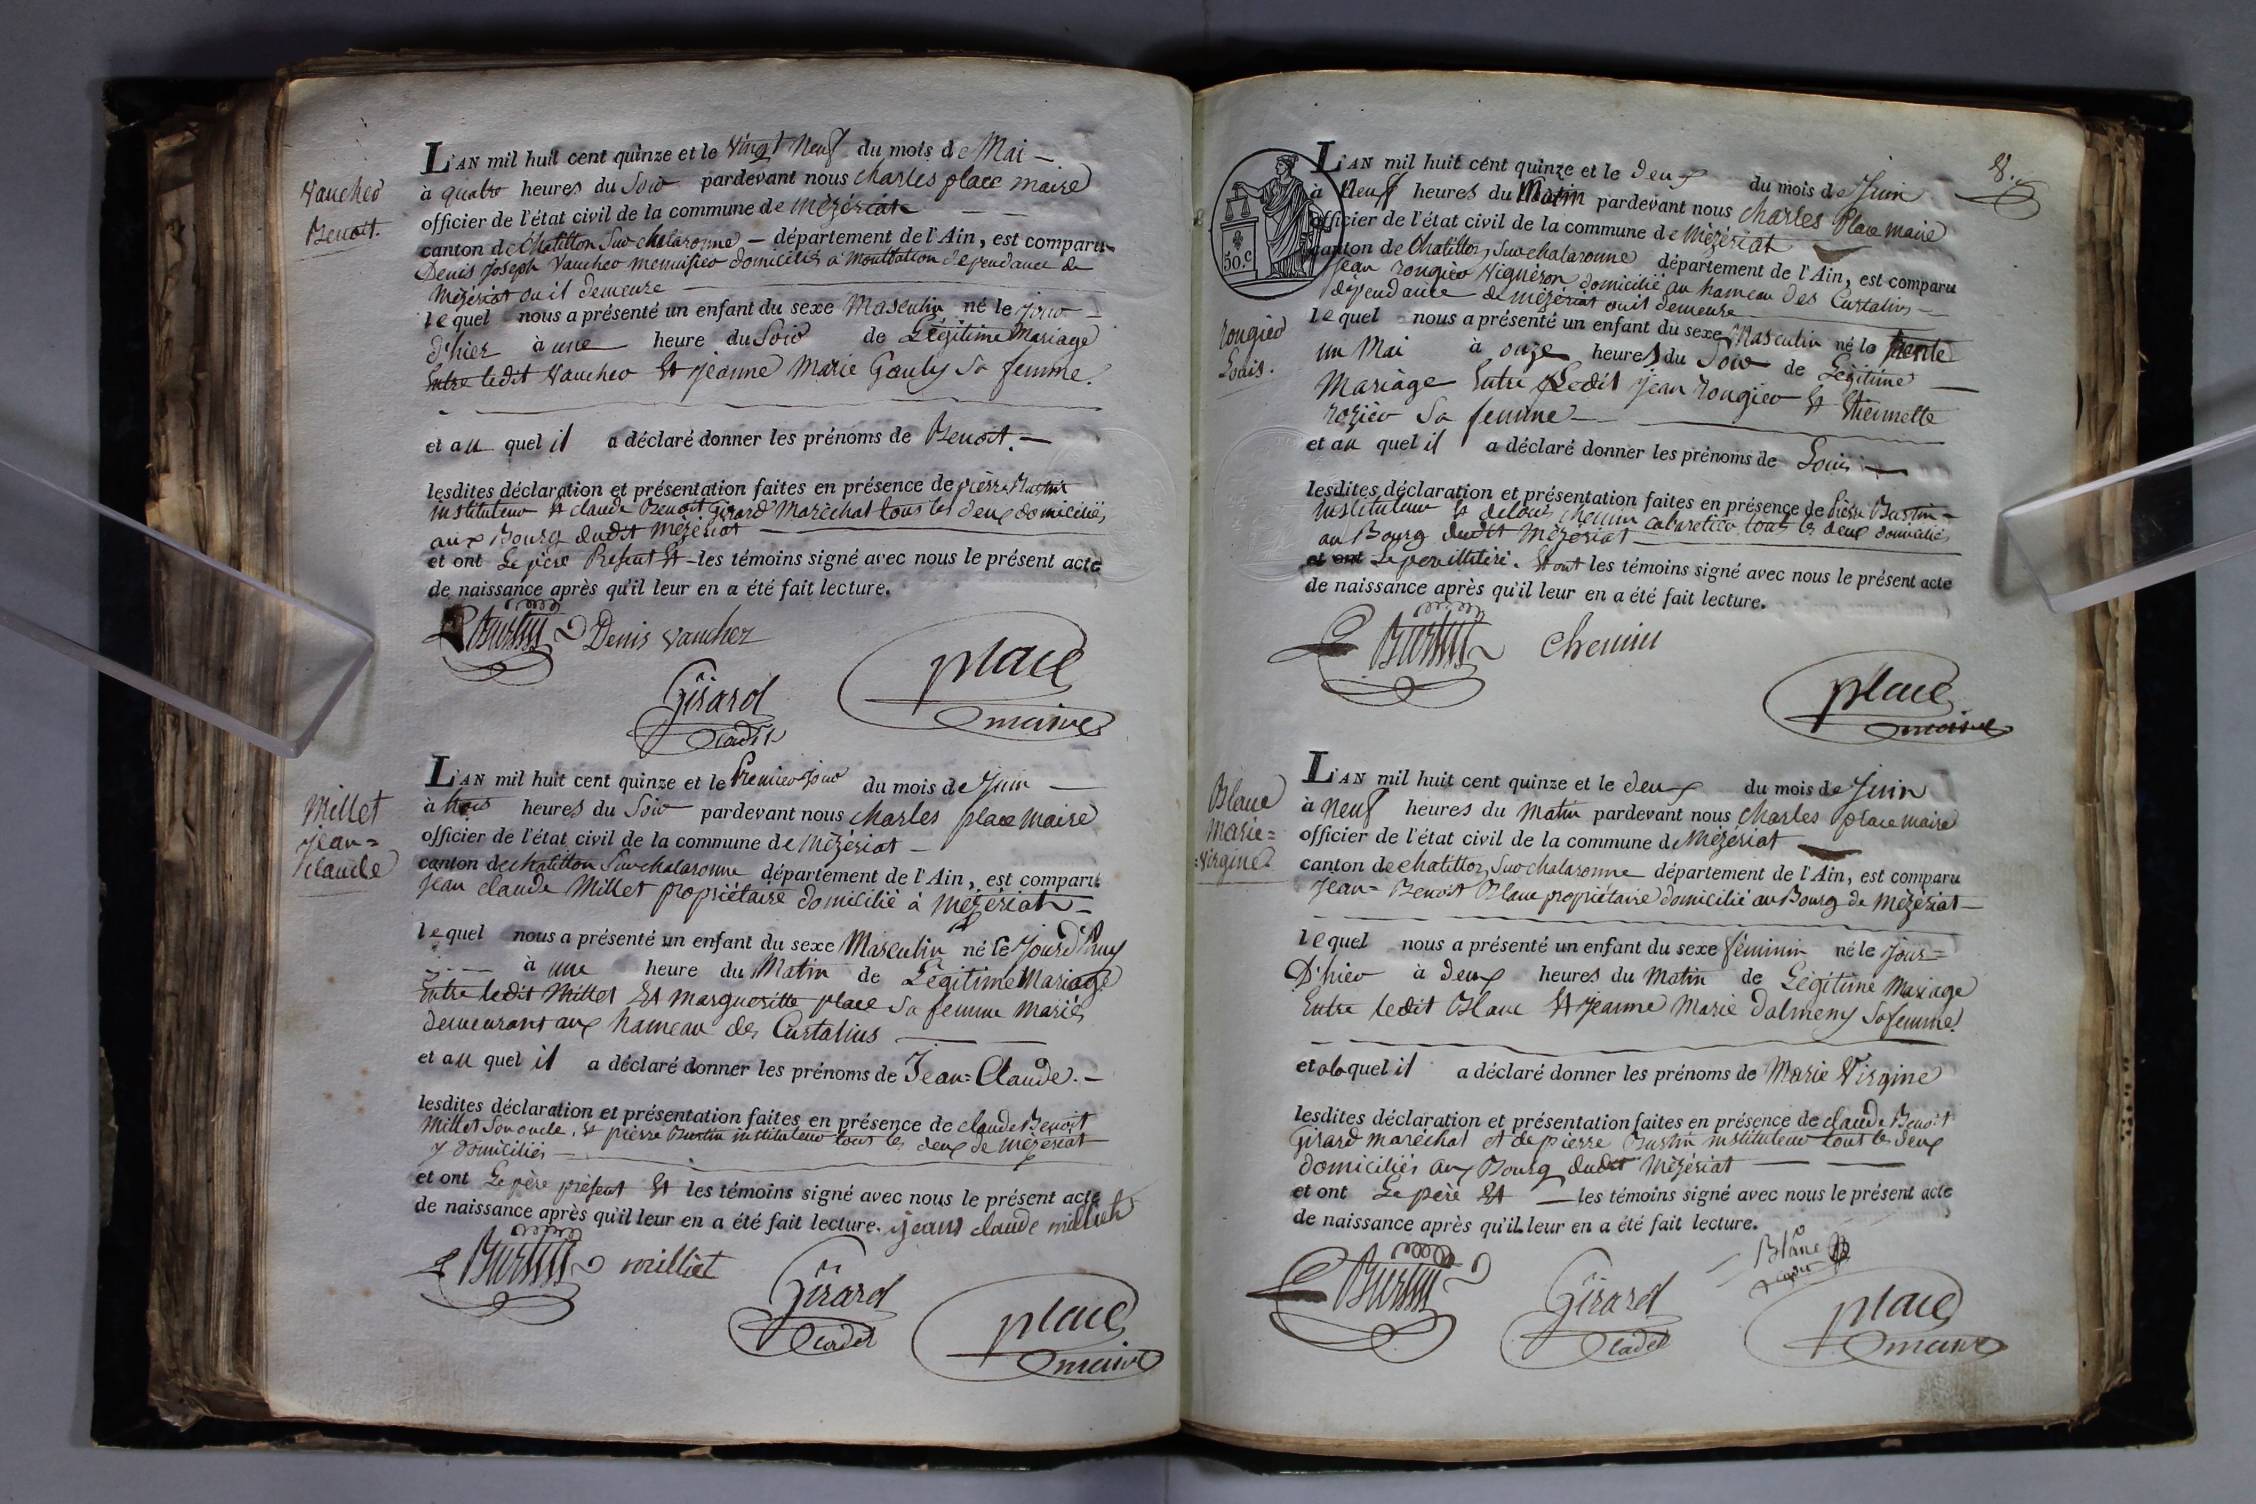 Vaucher
Benoit.
L'AN mil huit cent quinze et le vingt Neuf du mois de Mai
à quatre heures du Soir pardevant nous charles place maire
officier de l'état civil de la commune de Mézériat
canton de Chatillon Sur chalaronne département de l'Ain, est comparu
Denis Joseph Vaucher menuisier domicilié à dépendance de
Mézériat ou il demeure
lequel nous a présenté un enfant du sexe Masculin né le jour
d'hier à une heure du Soir de Légitime Mariage
Entre ledit Vaucher Et jeanne Marie Sa femme.
et au quel il a déclaré donner les prénoms de Benoit.
lesdites déclaration et présentation faites en présence de pierre Burtin
instituteur et claude Benoit Girard Maréchal tous les deux domiciliés
aux Bourg dudit Mézériat
et ont Le père Présent Et les témoins signé avec nous le présent acte
de naissance après qu'il leur en a été fait lecture.
Burtin Denis Vaucher
Girard place
cadet maire
Millet
jean=
claude
L'AN mil huit cent quinze et le Premier jour du mois de Juin
à trois heures du Soir pardevant nous charles place maire
officier de l'état civil de la commune de Mézériat
canton de chatillon Sur chalaronne département de l'Ain, est comparu
jean claude Millet propriétaire domicilié à Mézériat
lequel nous a présenté un enfant du sexe Masculin né le jourd'huy
à une heure du Matin de Légitime Mariage
Entre ledit Millet Et margueritte place Sa femme mariés
demeurant aux hameau des Curtalins
et au quel il a déclaré donner les prénoms de Jean=Claude.
lesdites déclaration et présentation faites en présence de claude Benoit
Millet Son oncle, et pierre Burtin instituteur tous les deux de Mézériat
y domiciliés
et ont Le père présent Et les témoins signé avec nous le présent acte
de naissance après qu'il leur en a été fait lecture. jean claude milliet
Burtin milliet
Girard place
cadet maire
8.
50.c
Rougier
Louis.
L'AN mil huit cent quinze et le deux du mois de Juin
à Neuf heures du Matin pardevant nous charles Place maire
officier de l'état civil de la commune de Mézériat
canton de Chatillon Sur chalaronne département de l'Ain, est comparu
jean rougier Vigneron domicilié au hameau des Curtalins
dépendance de Mézériat ou il demeure
lequel nous a présenté un enfant du sexe Masculin né le trente
un Mai à onze heures du Soir de Légitime
Mariage Entre Ledit jean rougier Et thiennette
rozier Sa femme
et au quel il a déclaré donner les prénoms de Louis
lesdites déclaration et présentation faites en présence de Pierre Burtin
instituteur et de Louis chemin cabaretier tous les deux domiciliés
au Bourg dudit Mézériat
et ont Le père illitéré. Et ont les témoins signé avec nous le présent acte
de naissance après qu'il leur en a été fait lecture.
Burtin chemin
place
maire
Blanc
Marie=
Virgine
L'AN mil huit cent quinze et le deux du mois de Juin
à Neuf heures du Matin pardevant nous charles place maire
officier de l'état civil de la commune de Mézériat
canton de chatillon Sur chalaronne département de l'Ain, est comparu
jean=Benoit Blanc propriétaire domicilié au Bourg de Mézériat
lequel nous a présenté un enfant du sexe féminin né le jour=
D'hier à deux heures du Matin de Légitime Mariage
Entre ledit Blanc Et jeanne Marie Dalmeny Sa femme.
et à la quel il a déclaré donner les prénoms de Marie Virgine
lesdites déclaration et présentation faites en présence de claude Benoit
Girard maréchal et de pierre Burtin instituteur tous les deux
domiciliés aux Bourg dudit Mézériat
et ont Le père Et les témoins signé avec nous le présent acte
de naissance après qu'il leur en a été fait lecture.
Blanc
Burtin Girard place
cadet maire